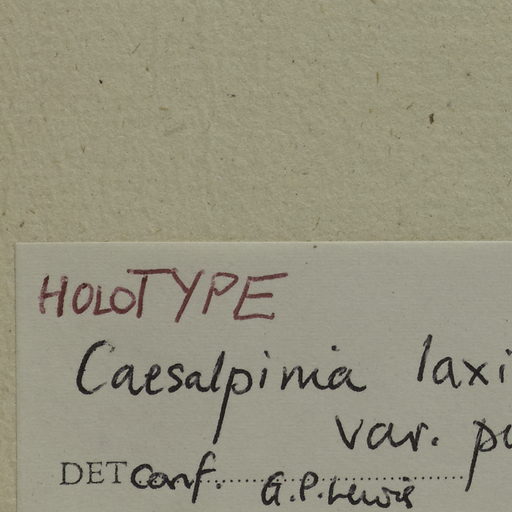 HOLOTYPE
Caesalpinia laxi
var. pu
DET conf. G.P. Lewis